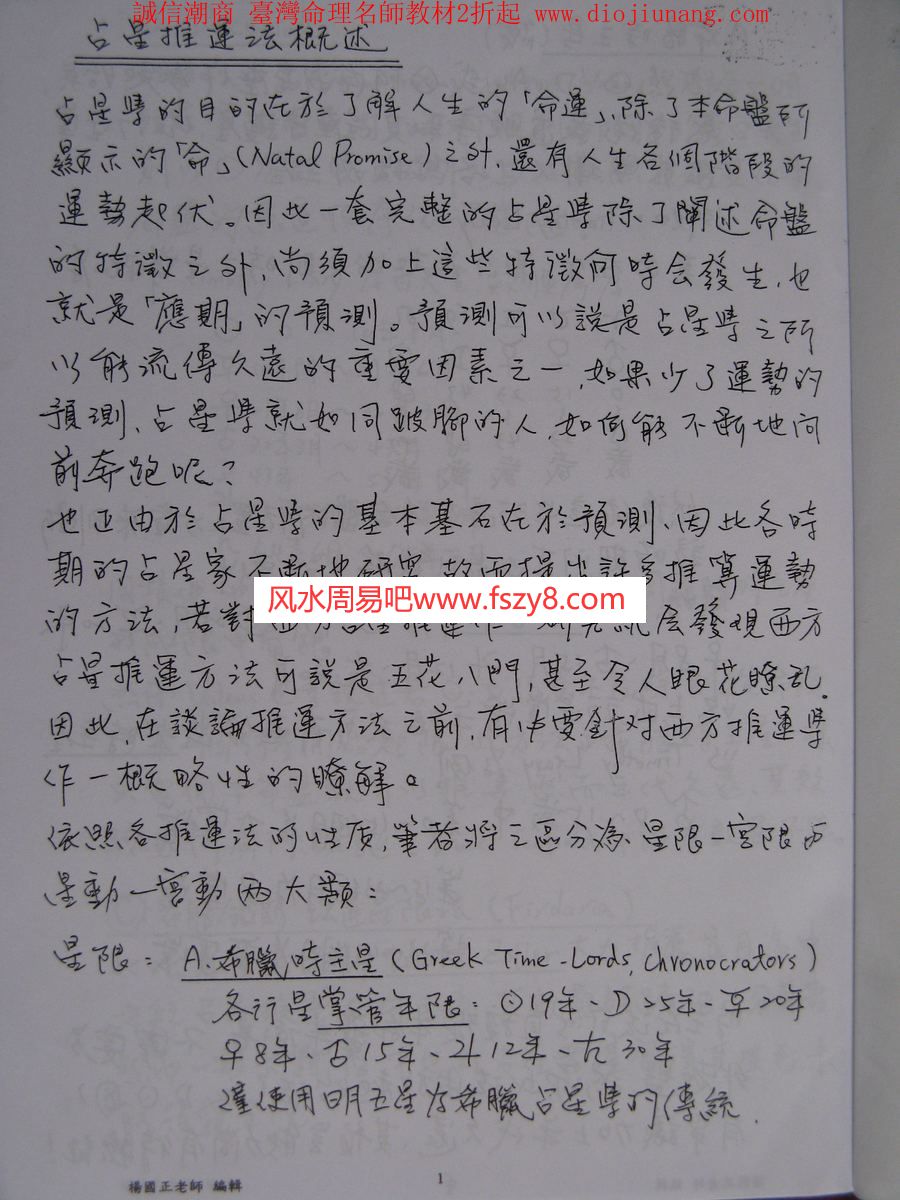 誠信潮商 臺灣命理名師教材2折起 www.diojiunang.com
占星推運法概述
占星學的目的在於了解人生的「命運」,除了本命盤所
顯示的「命」(Natal Promise)之外,還有人生各個階段的
運勢起伏。因此一套完整的占星學除了闡述命盤
的特徵之外,尚須加上這些特徵何時会發生,也
就是「應期」的預測。預測可以說是占星學之所
以能流傳久遠的重要因素之一,如果少了運勢的
預測,占星學就如同跛腳的人,如何能不斷地向
前奔跑呢?
也正由於占星學的基本基石在於預測,因此各時
期的占星家不斷地研究,故而提出許多推算運勢
風水周易吧www.fszy8.com
的方法,若對西方占星推運作一研究就会發現西方
占星推運方法可說是五花八門,甚至令人眼花瞭乱.
因此,在談論推運方法之前,有必要針对西方推運學
作一概略性的瞭解。
依照各推運法的性质,筆者將之區分為星限-宮限
星動-宮動兩大類:
星限: A.希臘時主星(Greek Time-Lords, chronocrators)
各行星掌管年限:☉19年、☽25年、♄20年
♀8年、♂15年、♃12年、♄30年
僅使用日月五星为希臘占星學的傳統.
1
楊國正老師 編輯